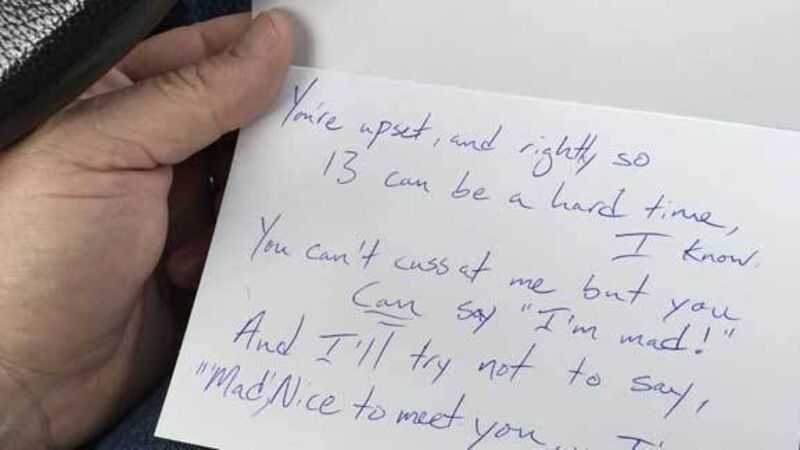 You're upset, and rightly so
13 can be a hard time,
I know.
You can't cuss at me but you
Can say "I'm mad!"
And I'll try not to say,
"'Mad', Nice to meet you, ... I'